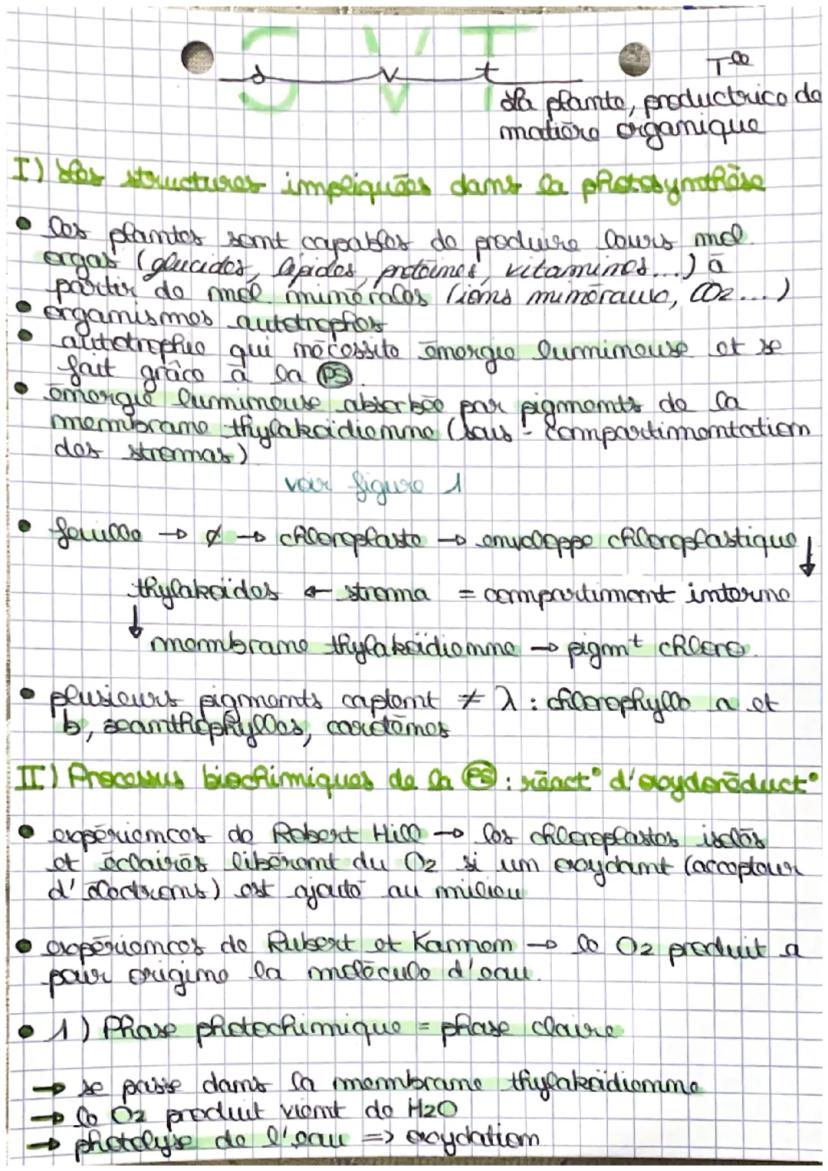 SVT
s v t
Tle
La plante, productrice de
matière organique
I) Les structures impliquées dans la photosynthèse
• les plantes sont capables de produire leurs mol
orgas (glucides, lipides, protéines, vitamines...) à
partir de mol minérales (ions minéraux, CO2...)
• organismes autotrophes
• autotrophie qui nécessite énergie lumineuse et se
fait grâce à la PS.
• énergie lumineuse absorbée par pigments de la
membrane thylakoïdienne (sous-compartimentation
des stromas)
voir figure 1
• feuille → ¢ → chloroplaste → enveloppe chloroplastique ↓
thylakoïdes ← stroma = compartiment interne
↓ membrane thylakoïdienne → pigmt chloro.
• plusieurs pigments captent ≠ λ : chlorophylle a et
b, xanthophylles, carotènes
II) Processus biochimiques de la PS : réact° d'oxydoréduct°
• expériences de Robert Hill → les chloroplastes isolés
et éclairés libèrent du O2 si un oxydant (accepteur
d'électrons) est ajouté au milieu
• expériences de Rubert et Kamnem → le O2 produit a
pour origine la molécule d'eau.
• 1) Phase photochimique = phase claire
→ se passe dans la membrane thylakoïdienne
→ le O2 produit vient de H2O
→ photolyse de l'eau => oxydation